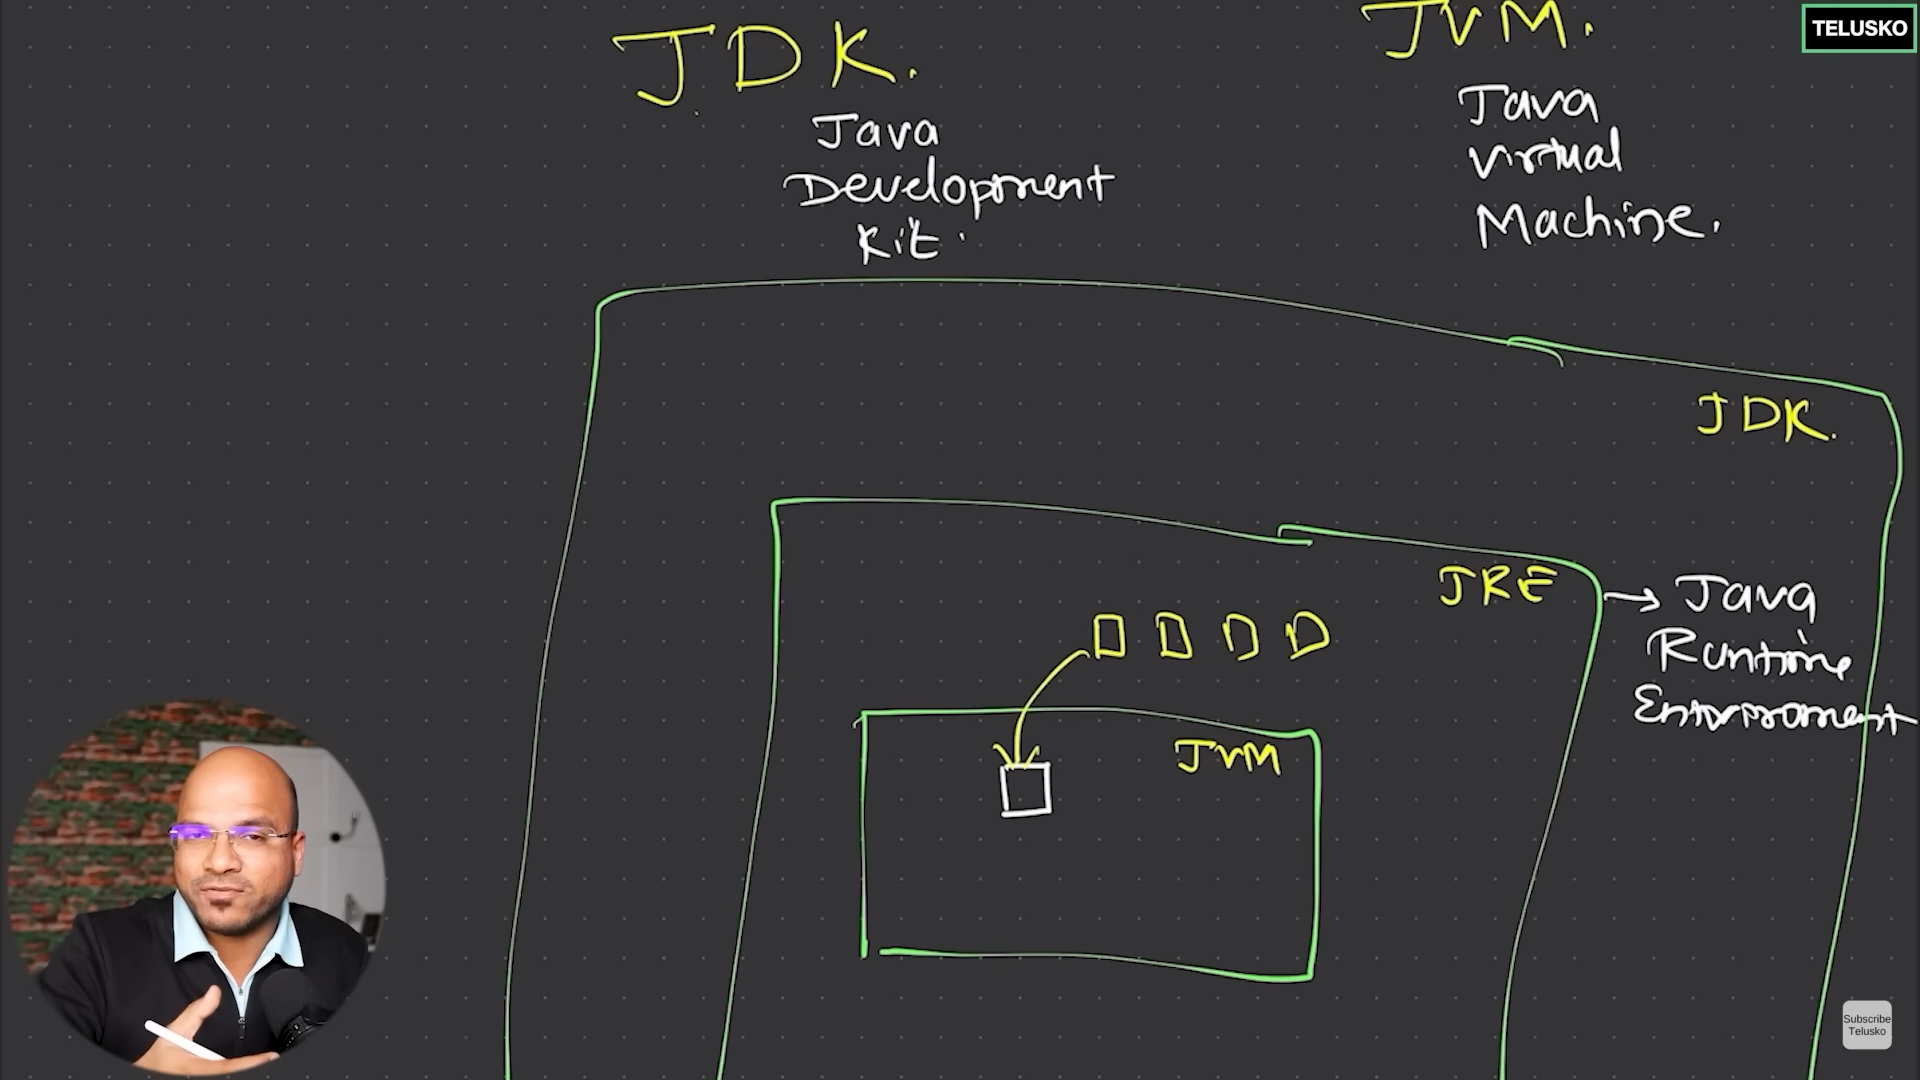 JDK.
Java
Development
Kit.
JVM.
Java
Virtual
Machine.
TELUSKO
JDK.
JRE
Java
Runtime
JVM
Subscribe
Telusko